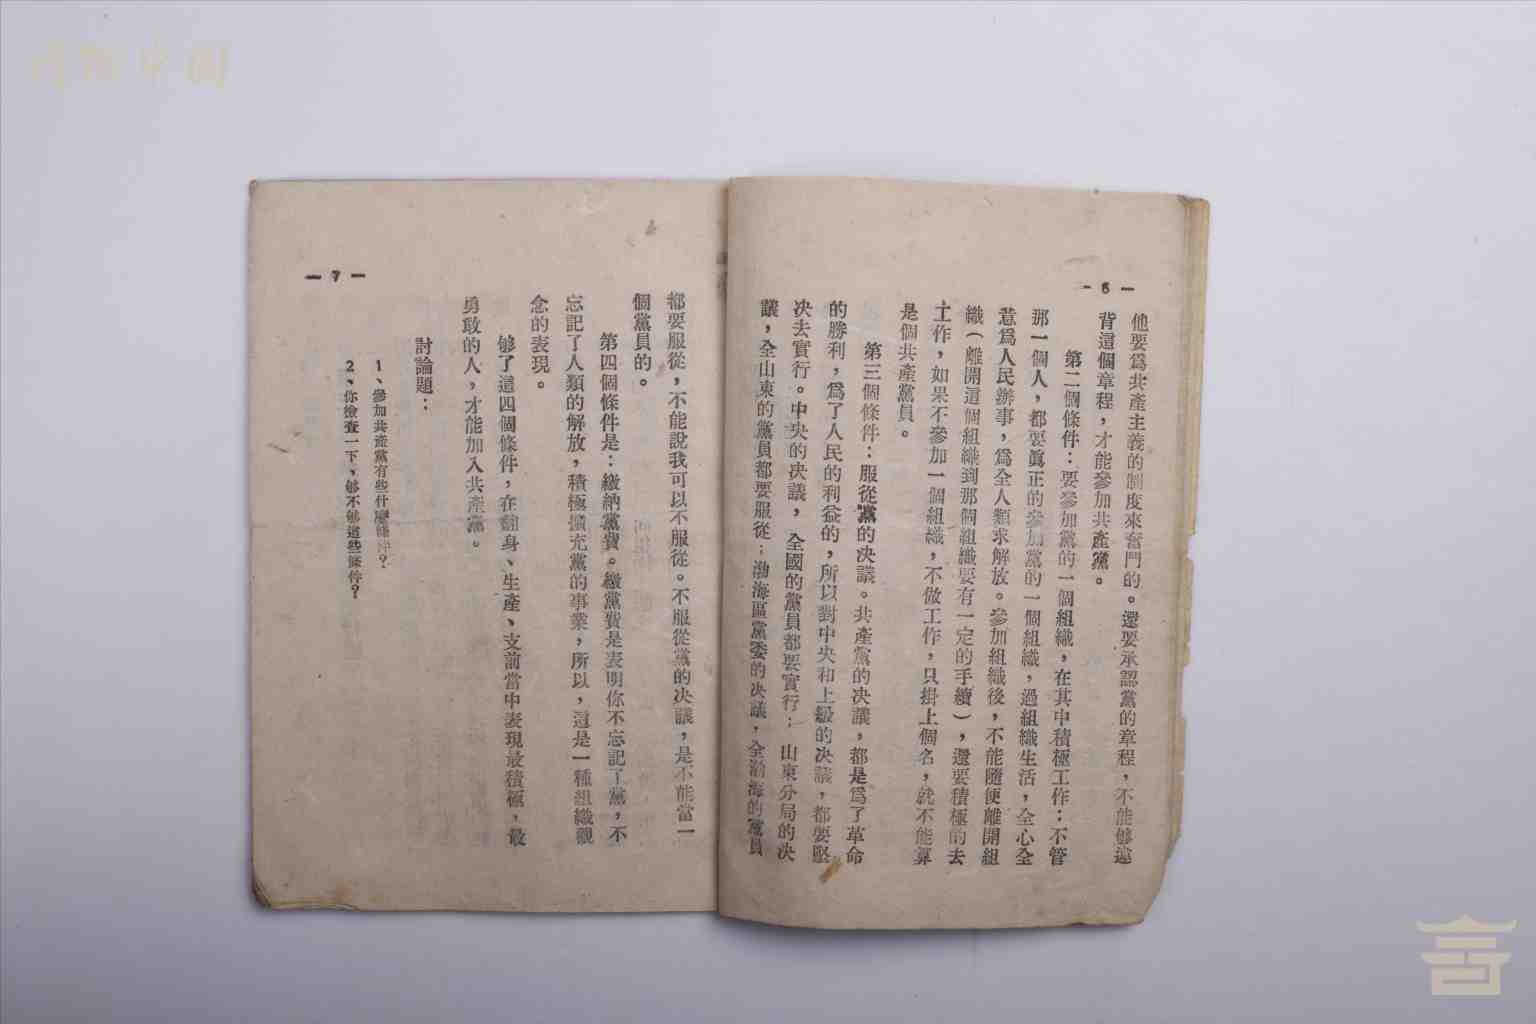 － 6 －
他要爲共產主義的制度來奮鬥的。還要承認黨的章程，不能够違
背這個章程，才能參加共產黨。
第二個條件：要參加黨的一個組織，在其中積極工作：不管
那一個人，都要眞正的參加黨的一個組織，過組織生活，全心全
意爲人民辦事，爲全人類求解放。參加組織後，不能隨便離開組
織（離開這個組織到那個組織要有一定的手續），還要積極的去
工作，如果不參加一個組織，不做工作，只掛上個名，就不能算
是個共產黨員。
第三個條件：服從黨的决議。共產黨的决議，都是爲了革命
的勝利，爲了人民的利益的，所以對中央和上級的决議，都要堅
决去實行。中央的决議，全國的黨員都要實行；山東分局的决
議，全山東的黨員都要服從；渤海區黨委的决議，全渤海的黨員
－ 7 －
都要服從，不能說我可以不服從。不服從黨的决議，是不能當一
個黨員的。
第四個條件是：繳納黨費。繳黨費是表明你不忘記了黨，不
忘記了人類的解放，積極擴充黨的事業，所以，這是一種組織觀
念的表現。
够了這四個條件，在翻身、生產、支前當中表現最積極，最
勇敢的人，才能加入共產黨。
討論題：
1、參加共產黨有些什麼條件？
2、你檢查一下，够不够這些條件？
中國